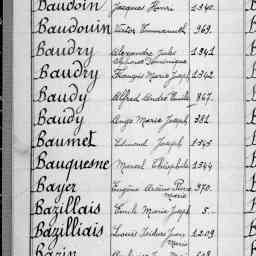 Baudoin Jacques Henri 1340.
Baudouin Victor Emmanuel 969.
Baudry Alexandre Jules 1341
Baudry François Marie Joseph 1342
Baudy Alfred André Emile 867.
Baudy Ange Marie Joseph 391
Baumet Edmond Joseph 1343
Bauquesne Marcel Théophile 1344
Bayer Eugène Marie 370.
Bazillais Emile Marie Joseph 5.-
Bazilliais Louis Isidore Jean Marie 1209
Bazin